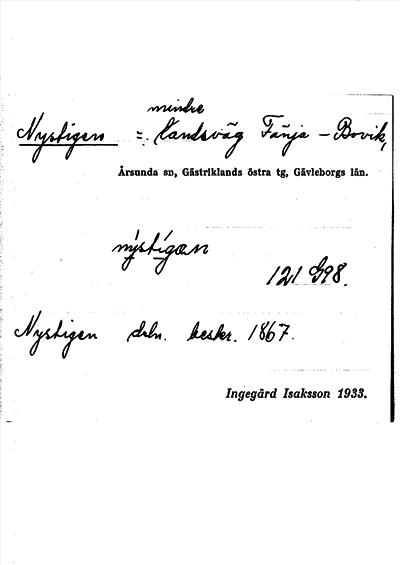 mindre
Nystigen = landsväg Fänja - Bovik,
Årsunda sn, Gästriklands östra tg, Gävleborgs län.
nýstígan
121 G98.
Nystigen drln. beskr. 1867.
Ingegärd Isaksson 1933.